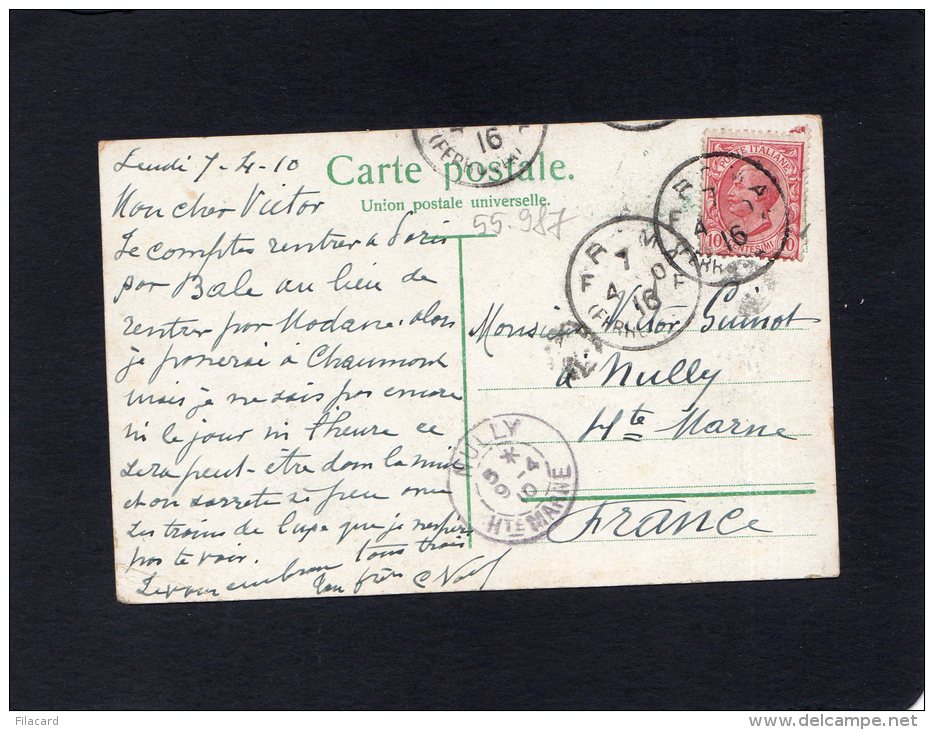 Carte postale.
Union postale universelle.
55.987
Lundi 7-4-10
Mon cher Victor
Je comptes rentrer à Paris
par Bale au lieu de
rentrer par Modane. alors
je passerai à Chaumont
mais je ne sais pas encore
ni le jour ni l'heure ce
sera peut-être dans la nuit
et on sarrete si peu avec
les trains de luxe que je n'espère
pas te voir.
Je vous embrasse tous trois
Ton frère
POSTE ITALIANE
10 CENTESIMI 10
ROMA
7
4 10
16
(FERROVIA)
Monsieur Victor Guinot
à Nully
Hte Marne
France
NULLY
*
9-4
10
HTE MARNE
Filacard
delcampe.net